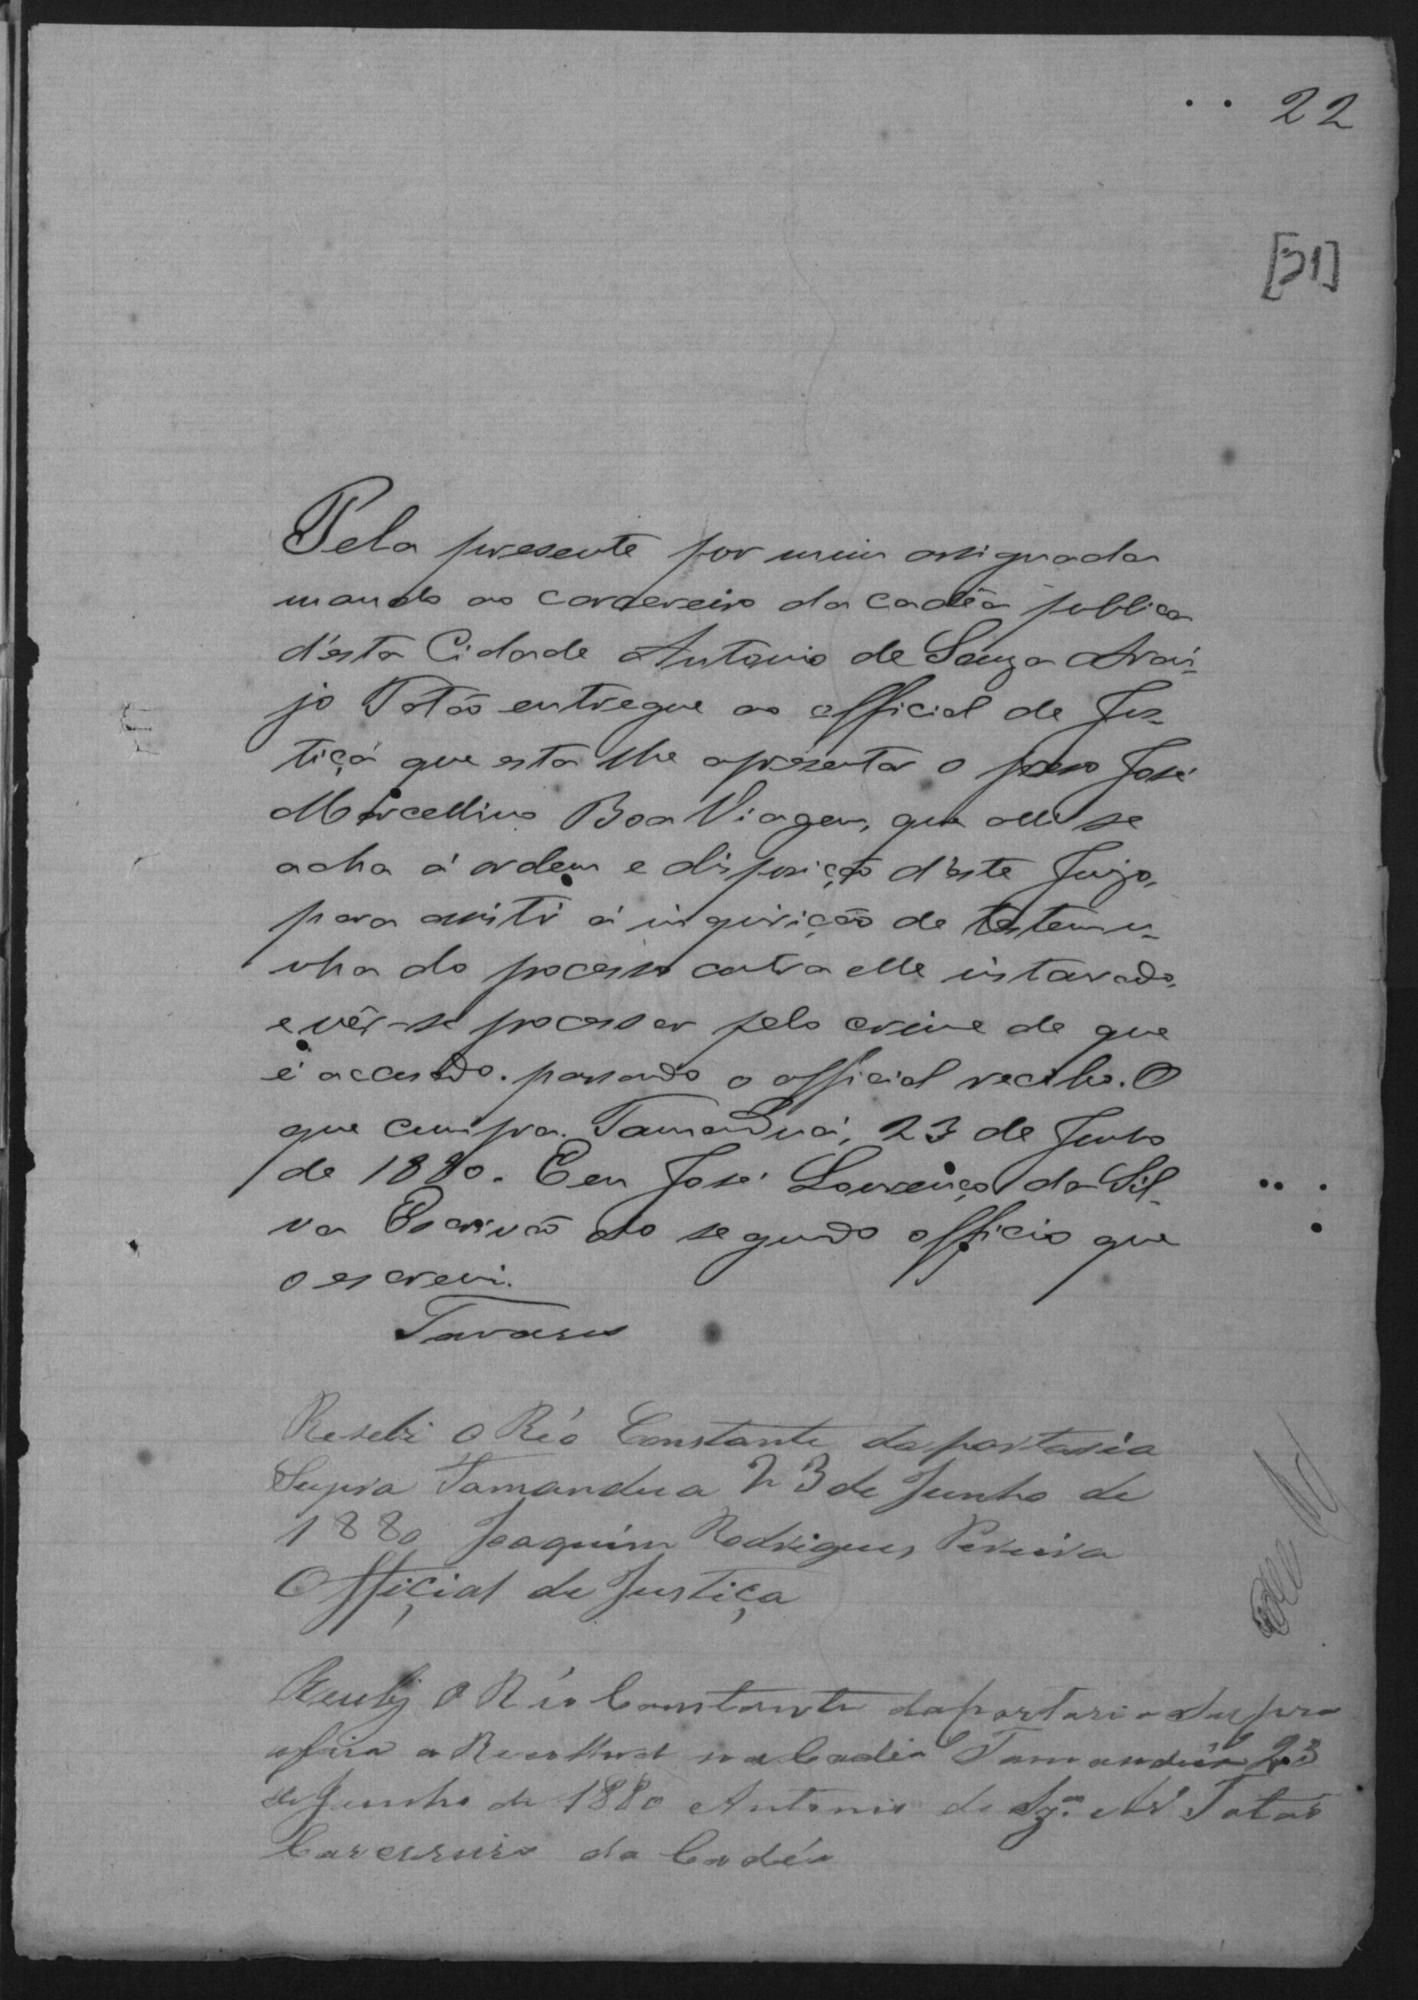 22
[31]
Pela presente por mim assignada
mando ao carcereiro da cadêa publica
d'esta Cidade Antonio de Souza Arau-
jo Totão entregue ao official de Jus-
tiça que esta lhe apresentar o preso José
Marcellino Boa Viagem, que alli se
acha á ordem e disposição d'este Juizo,
para assistir á inquirição de testemu-
nha do processo contra elle instaurado,
e vêr-se processar pelo crime de que
é accusado. passando o official recibo. O
que cumpra. Tamanduá, 23 de Junho
de 1880. Eu José Lourenço da Sil-
va Escrivão do segundo officio que
o escrevi.
Tavares
Resebi o Réo Constante da portaria
Supra Tamandua 23 de Junho de
1880 Joaquim Rodrigues Pereira
Offiçial de Justiça
Recebj o Réo Constante da portaria Supra
a Recolhed na Cadéa Tamanduá 23
de Junho de 1880 Antonio de Sza. Totão
Carcereiro da Cadéa